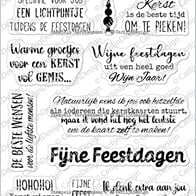 SPECIAAL VOOR JOU
EEN LICHTPUNTJE
TIJDENS DE FEESTDAGEN
Kerst
is de beste tijd
OM TE PIEKEN!
Warme groetjes
voor een KERST
vol GEMIS...
Wijne feestdagen
uit een heel goed
Wijn Jaar!
DE BESTE WENSEN
voor de liefste mensen!
Natuurlijk wens ik jou ook hetzelfde
als iedereen die kerstkaarten stuurt
maar ik vond het nog het leukste
om de kaart zelf te maken!
Fijne Feestdagen
HOHOHO!
FIJNE
FEEST
Ik denk extra aan je